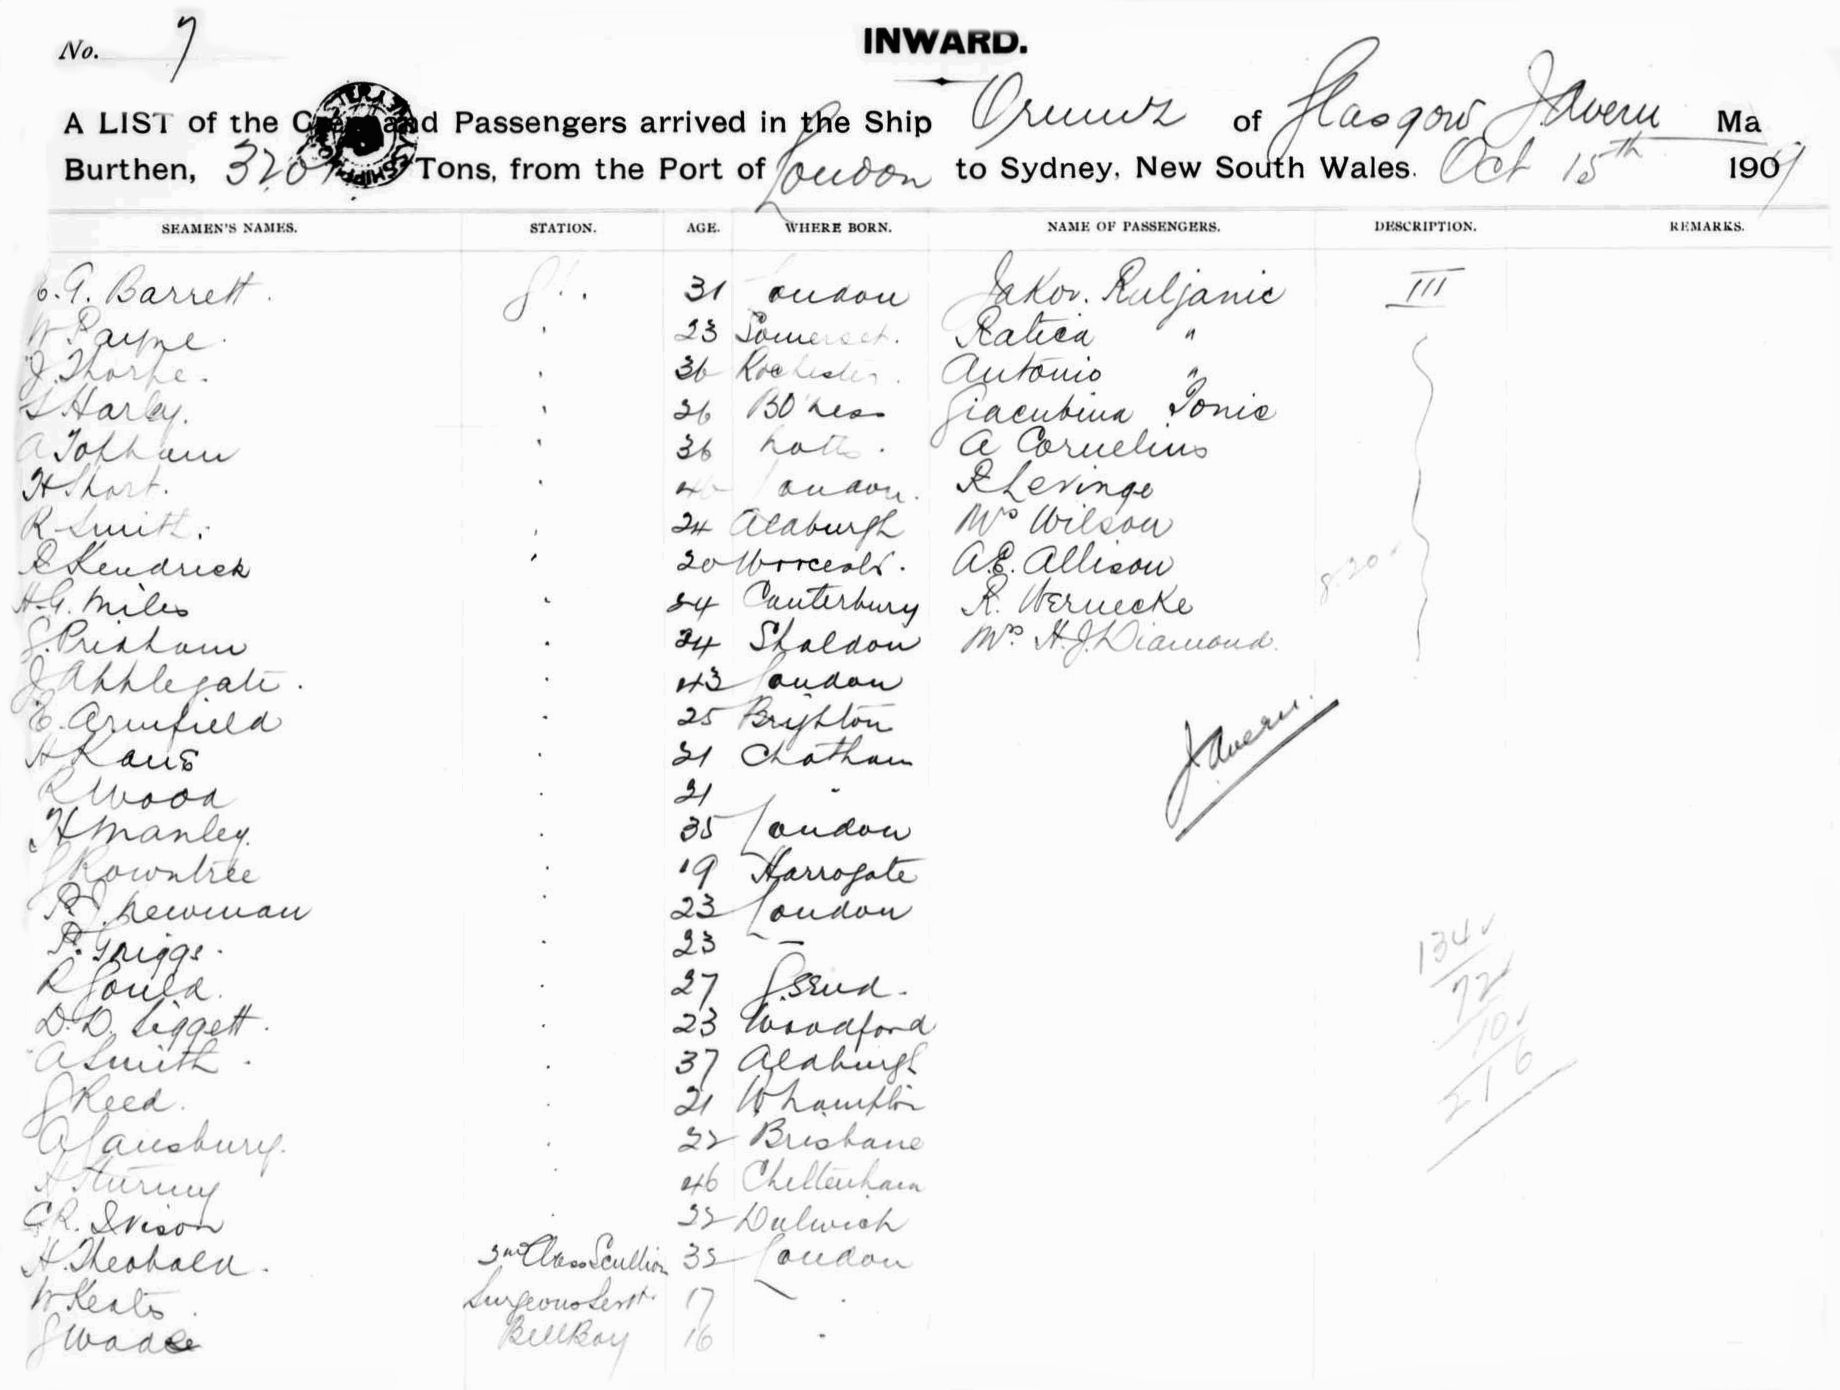 No. 7
INWARD.
A LIST of the Crew and Passengers arrived in the Ship Ormuz of Glasgow J Avern Ma
Burthen, Tons, from the Port of London to Sydney, New South Wales. Oct 15th 1907
SEAMEN'S NAMES. STATION. AGE. WHERE BORN. NAME OF PASSENGERS. DESCRIPTION. REMARKS.
E. G. Barrett. 31 London Jakov. Ruljanic III
W Payne. 23 Somerset. Ratica "
J. Thorpe. 36 Rochester. Antonio "
Harley. 26 Bo'ness Giacubina Tonic
A Topham 36 Notts. A Cornelius
H Short. London. R Levinge
R Smith. 24 Aldburgh Mrs Wilson
R Kendrick 20 Worcestr. A.E. Allison
H. G. Miles 24 Canterbury R. Wernecke
G. Pridham 24 Shaldon Mrs. H. J. Diamond.
J Applegate. 43 London
E. Armfield 25 Brighton
H Kane 21 Chatham
J. Avern.
R Wood 21 "
H Manley. 35 London
J Rowntree 19 Harrogate
R. J. Newman 23 London
134
R. Griggs. 23 "
R Gould. 27 G.send.
72
D. D. Liggett. 23 Woodford
10
A Smith. 37 Aldburgh
216
J Reed. 21 W'hampton
A Lansbury. 22 Brisbane
H Sturmy 46 Cheltenham
C R. Ivison 22 Dulwich
H. Theobald. 3rd Class Scullion 32 London
W Keats. Surgeons Servt. 17 "
G Wade Bell Boy 16 "